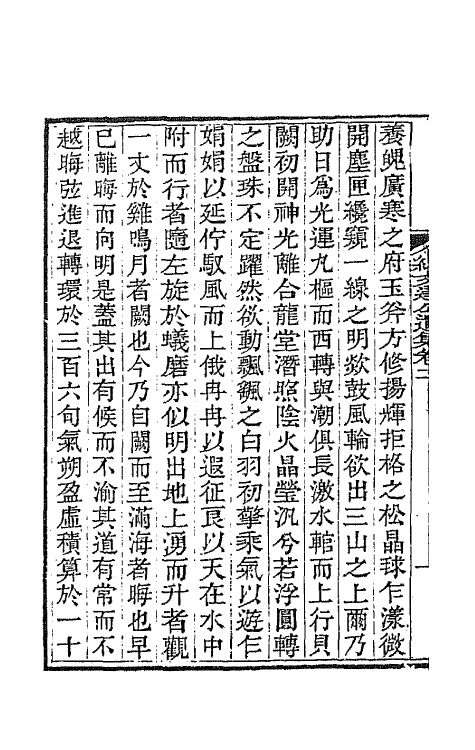 養魄廣寒之府玉斧方修揚輝拒格之松晶球乍漾微
開塵匣纔窺一線之明欻鼓風輪欲出三山之上爾乃
助日爲光運九樞而西轉與潮俱長激水輨而上行貝
闕初開神光離合龍堂潛照陰火晶瑩汎兮若浮圓轉
之盤珠不定躍然欲動飄颻之白羽初擎乘氣以遊乍
娟娟以延佇馭風而上俄冉冉以遐征良以天在水中
附而行者隨左旋於蟻磨亦似明出地上湧而升者觀
一丈於雞鳴月者闕也今乃自闕而至滿海者晦也早
已離晦而向明是蓋其出有候而不渝其道有常而不
越晦弦進退轉環於三百六旬氣朔盈虛積算於一十
遺集卷二